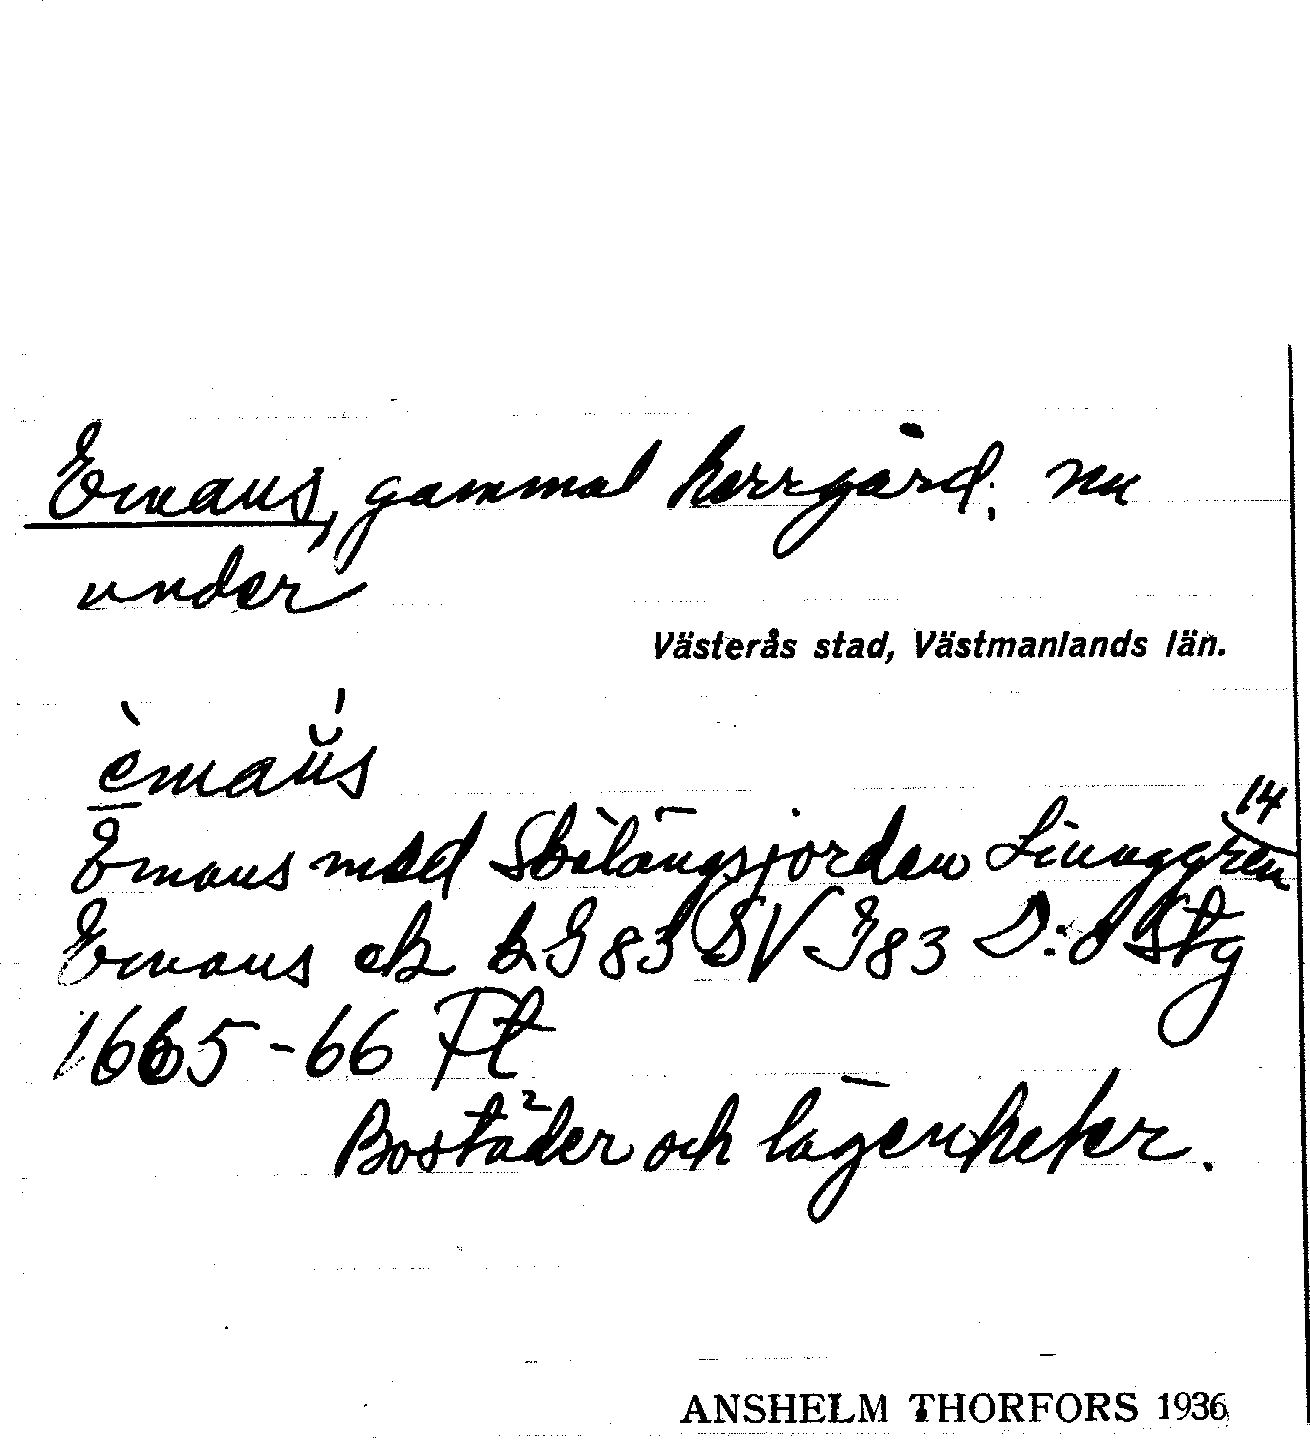 Emaus, gammal herrgård; nu
under
Västerås stad, Västmanlands län.
èmaŭ́s
Emaus med Skälängsjorden Linaggren 14
Emaus ek k G 83 SV J83 D:o Stg
1665-66 Ft
Bostäder och lägenheter.
ANSHELM THORFORS 1936